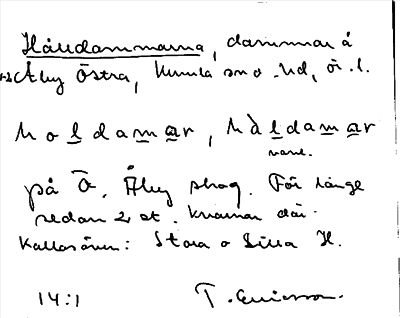 Hålldammarna, dammar å
Åby Östra, Kumla sn o. hd, ör. l.
h o l d a m a r, h å l d a m a r
vanl.
på Ö. Åby skog. För länge
sedan 2 st. kvarnar där.
Kallas även: Stora o Lilla H.
14:1 T. Ericsson.